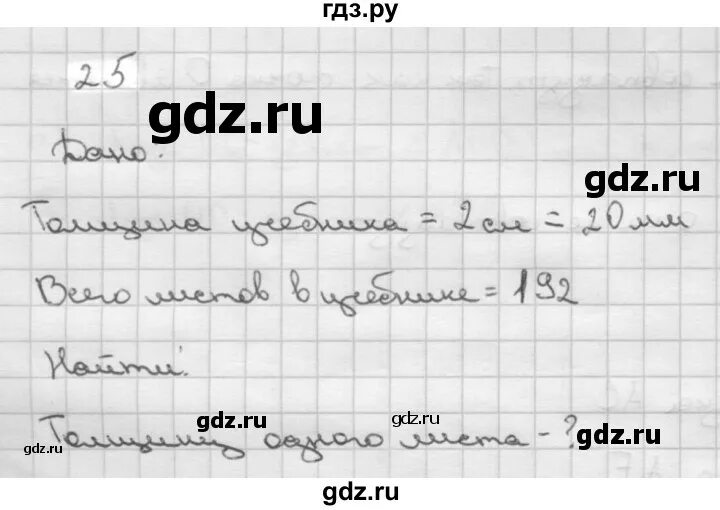 гдз.ру
25
gdz.ru
Дано:
gdz.ru
Толщина учебника = 2 см = 20 мм
Всего листов в учебнике = 192
Найти:
gdz.ru
gdz.ru
gdz.ru
gdz.ru
Толщину одного листа - ?
gdz.ru